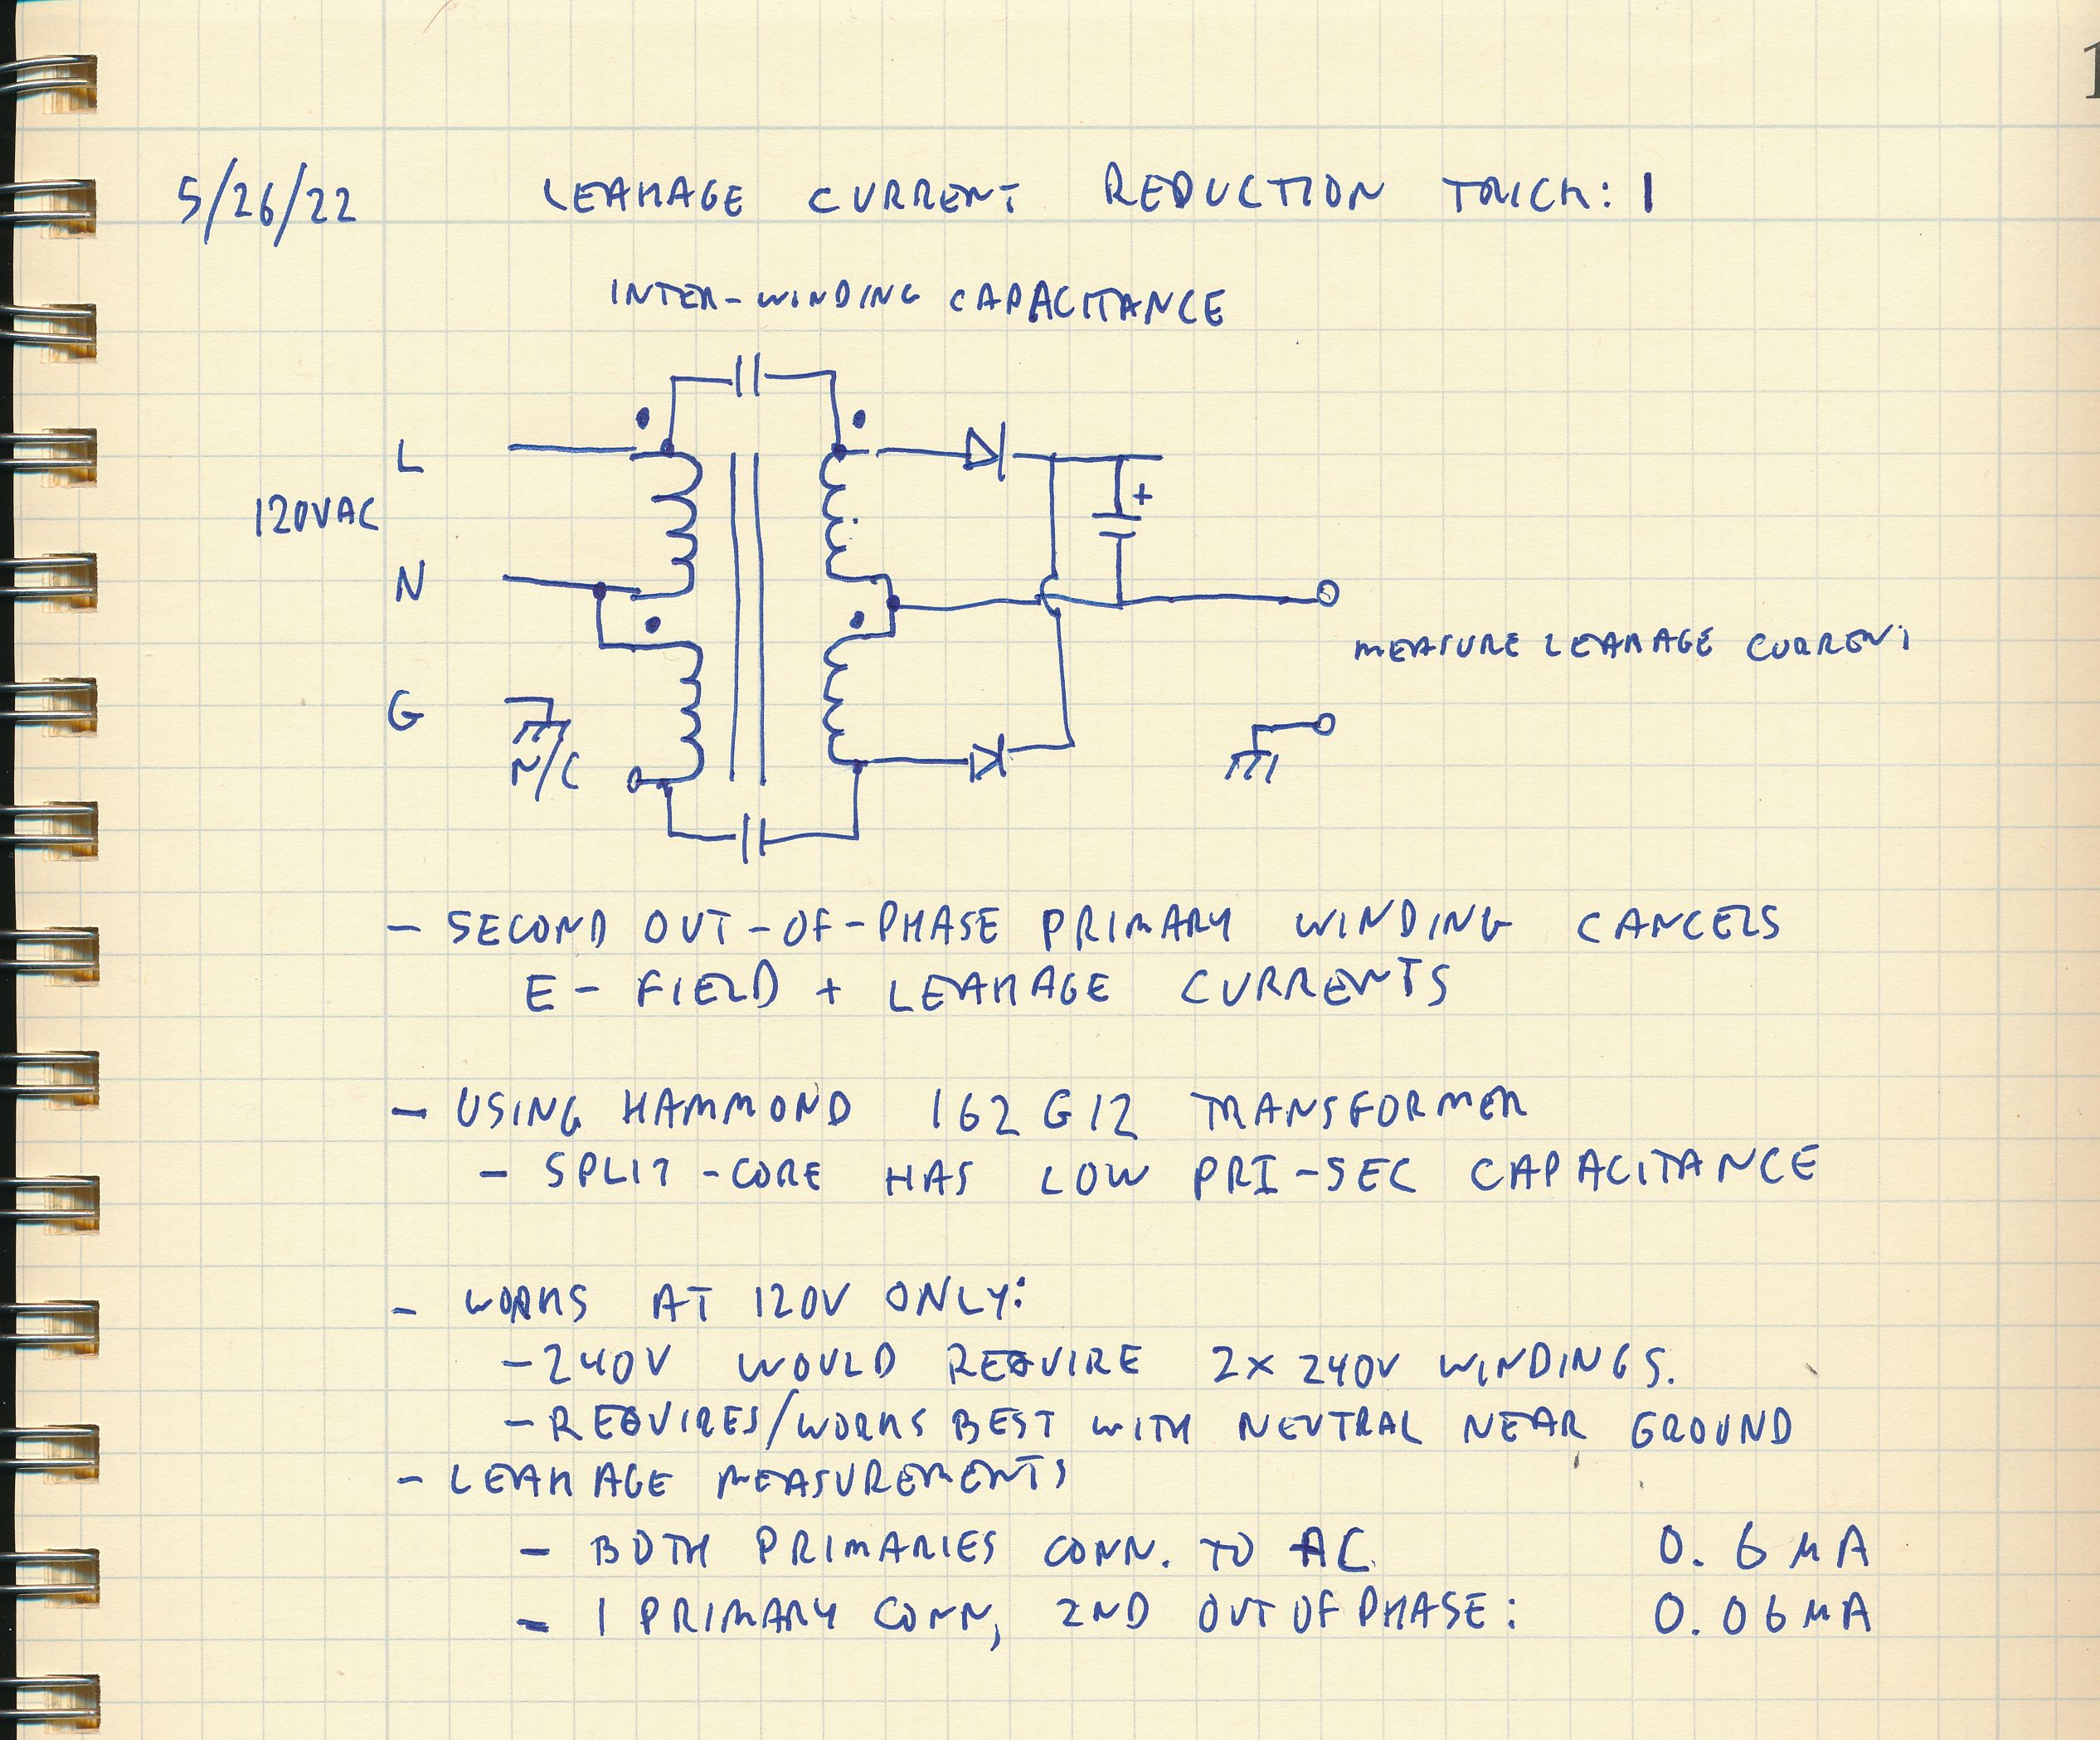 1
5/26/22 LEAKAGE CURRENT REDUCTION TRICK: 1
INTER-WINDING CAPACITANCE
L
+
120VAC
N
MEASURE LEAKAGE CURRENT
G
N/C
- SECOND OUT-OF-PHASE PRIMARY WINDING CANCELS
E-FIELD + LEAKAGE CURRENTS
- USING HAMMOND 162G12 TRANSFORMER
- SPLIT-CORE HAS LOW PRI-SEC CAPACITANCE
- WORKS AT 120V ONLY:
- 240V WOULD REQUIRE 2x 240V WINDINGS.
- REQUIRES/WORKS BEST WITH NEUTRAL NEAR GROUND
- LEAKAGE MEASUREMENTS
- BOTH PRIMARIES CONN. TO AC 0.6 μA
- 1 PRIMARY CONN, 2ND OUT OF PHASE: 0.06 μA